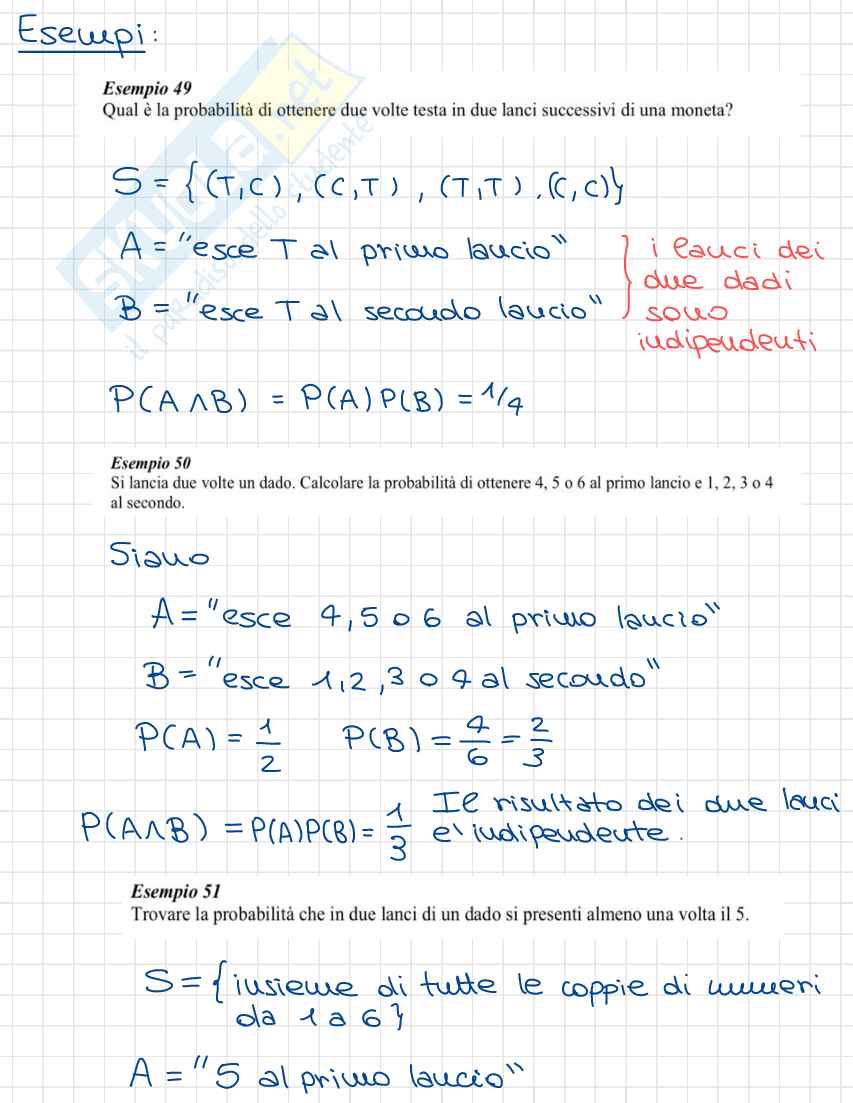 Esempi:
Esempio 49
Qual è la probabilità di ottenere due volte testa in due lanci successivi di una moneta?
S = {(T,C), (C,T), (T,T), (C,C)}
A = "esce T al primo lancio"
B = "esce T al secondo lancio"
i lanci dei
due dadi
sono
indipendenti
P(A∧B) = P(A)P(B) = 1/4
Esempio 50
Si lancia due volte un dado. Calcolare la probabilità di ottenere 4, 5 o 6 al primo lancio e 1, 2, 3 o 4
al secondo.
Siano
A = "esce 4,5 o 6 al primo lancio"
B = "esce 1,2,3 o 4 al secondo"
P(A) = 1/2 P(B) = 4/6 = 2/3
P(A∧B) = P(A)P(B) = 1/3 Il risultato dei due lanci
e' indipendente.
Esempio 51
Trovare la probabilità che in due lanci di un dado si presenti almeno una volta il 5.
S = {insieme di tutte le coppie di numeri
da 1 a 6}
A = "5 al primo lancio"
SKUOLA.net
il paradiso dello studente